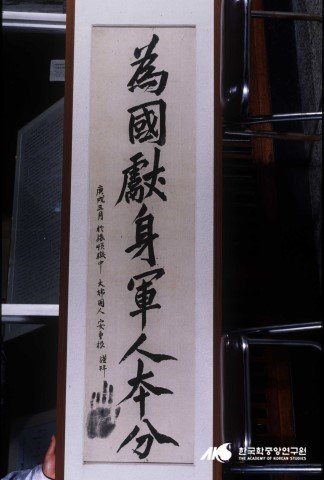 為國獻身軍人本分
庚戌三月 於旅順獄中 大韓國人 安重根 謹拜
한국학중앙연구원
THE ACADEMY OF KOREAN STUDIES